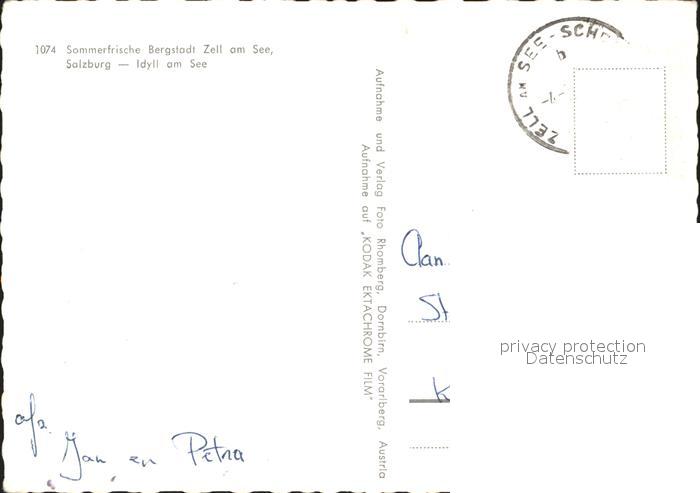 1074 Sommerfrische Bergstadt Zell am See,
Salzburg — Idyll am See
ZELL AM SEE - SCH
b
Aufnahme und Verlag Foto Rhomberg, Dornbirn, Vorarlberg, Austria
Aufnahme auf „KODAK EKTACHROME FILM"
St
K
privacy protection
Datenschutz
afz.
Jan en Petra